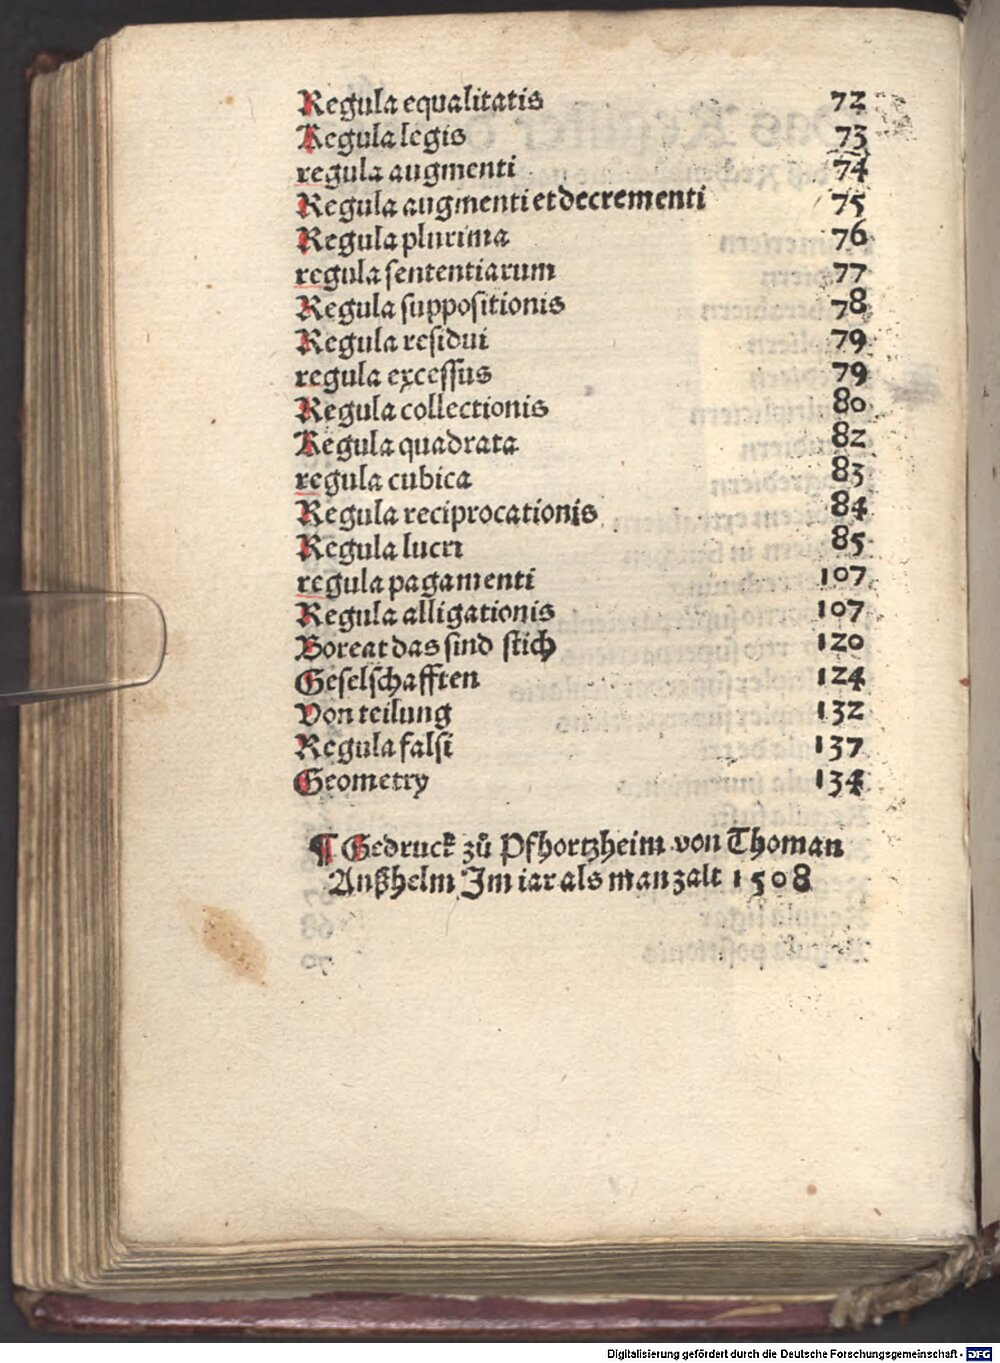 Regula equalitatis 72
Regula legis 73
regula augmenti 74
Regula augmenti et decrementi 75
Regula plurima 76
regula sententiarum 77
Regula suppositionis 78
Regula residui 79
regula excessus 79
Regula collectionis 80
Regula quadrata 82
regula cubica 83
Regula reciprocationis 84
Regula lucri 85
regula pagamenti 107
Regula alligationis 107
Boreat das sind stich 120
Geselschafften 124
Von teilung 132
Regula falsi 137
Geometry 134
¶ Gedruckt zů Pfhortzheim von Thoman
Anßhelm Im iar als man zalt 1508
Digitalisierung gefördert durch die Deutsche Forschungsgemeinschaft - DFG